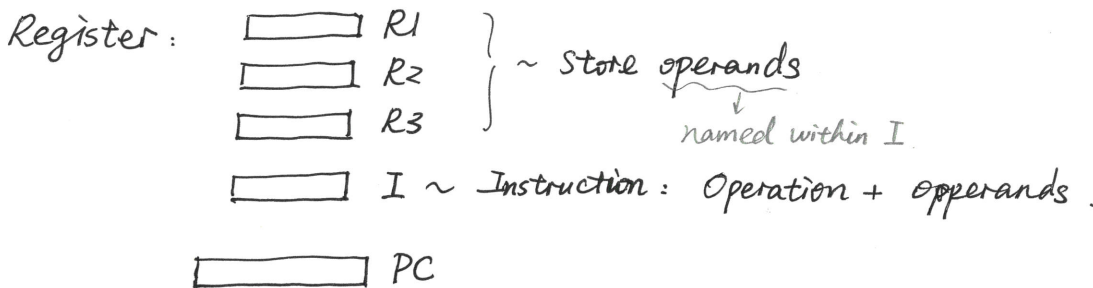 Register:
R1
R2
~ Store operands
R3
named within I.
I ~ Instruction: Operation + opperands.
PC